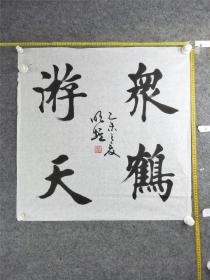 衆鶴
游天
乙未之夏